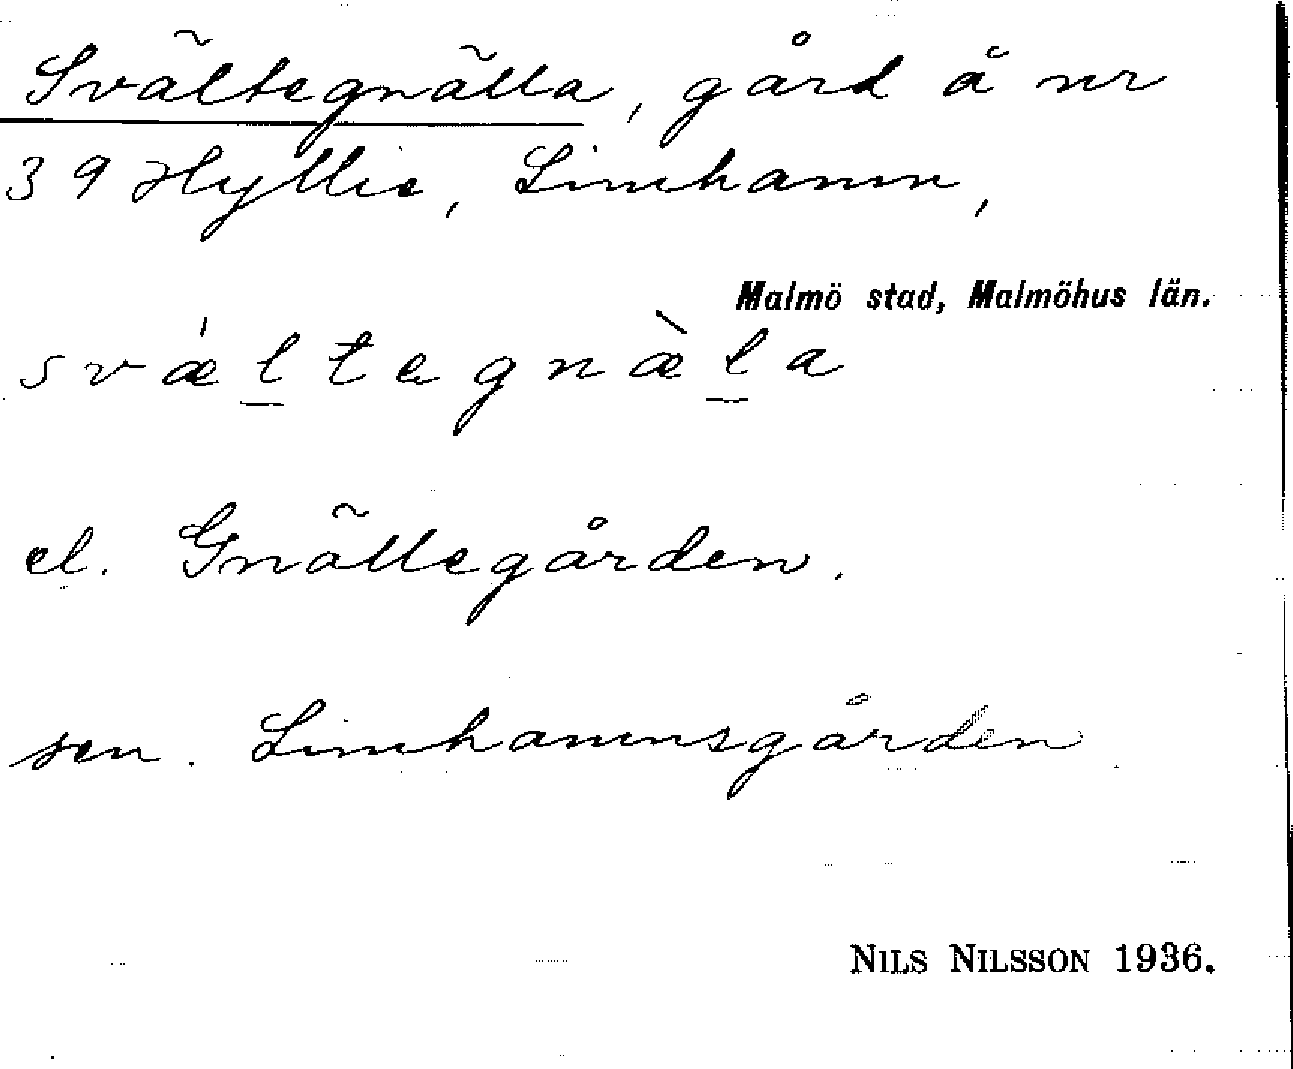 Svältegnälla, gård å nr
39 Hyllie, Limhamn,
Malmö stad, Malmöhus län.
svǽltegnæ̀la
el. Gnällegården.
sen. Limhamnsgården
NILS NILSSON 1936.